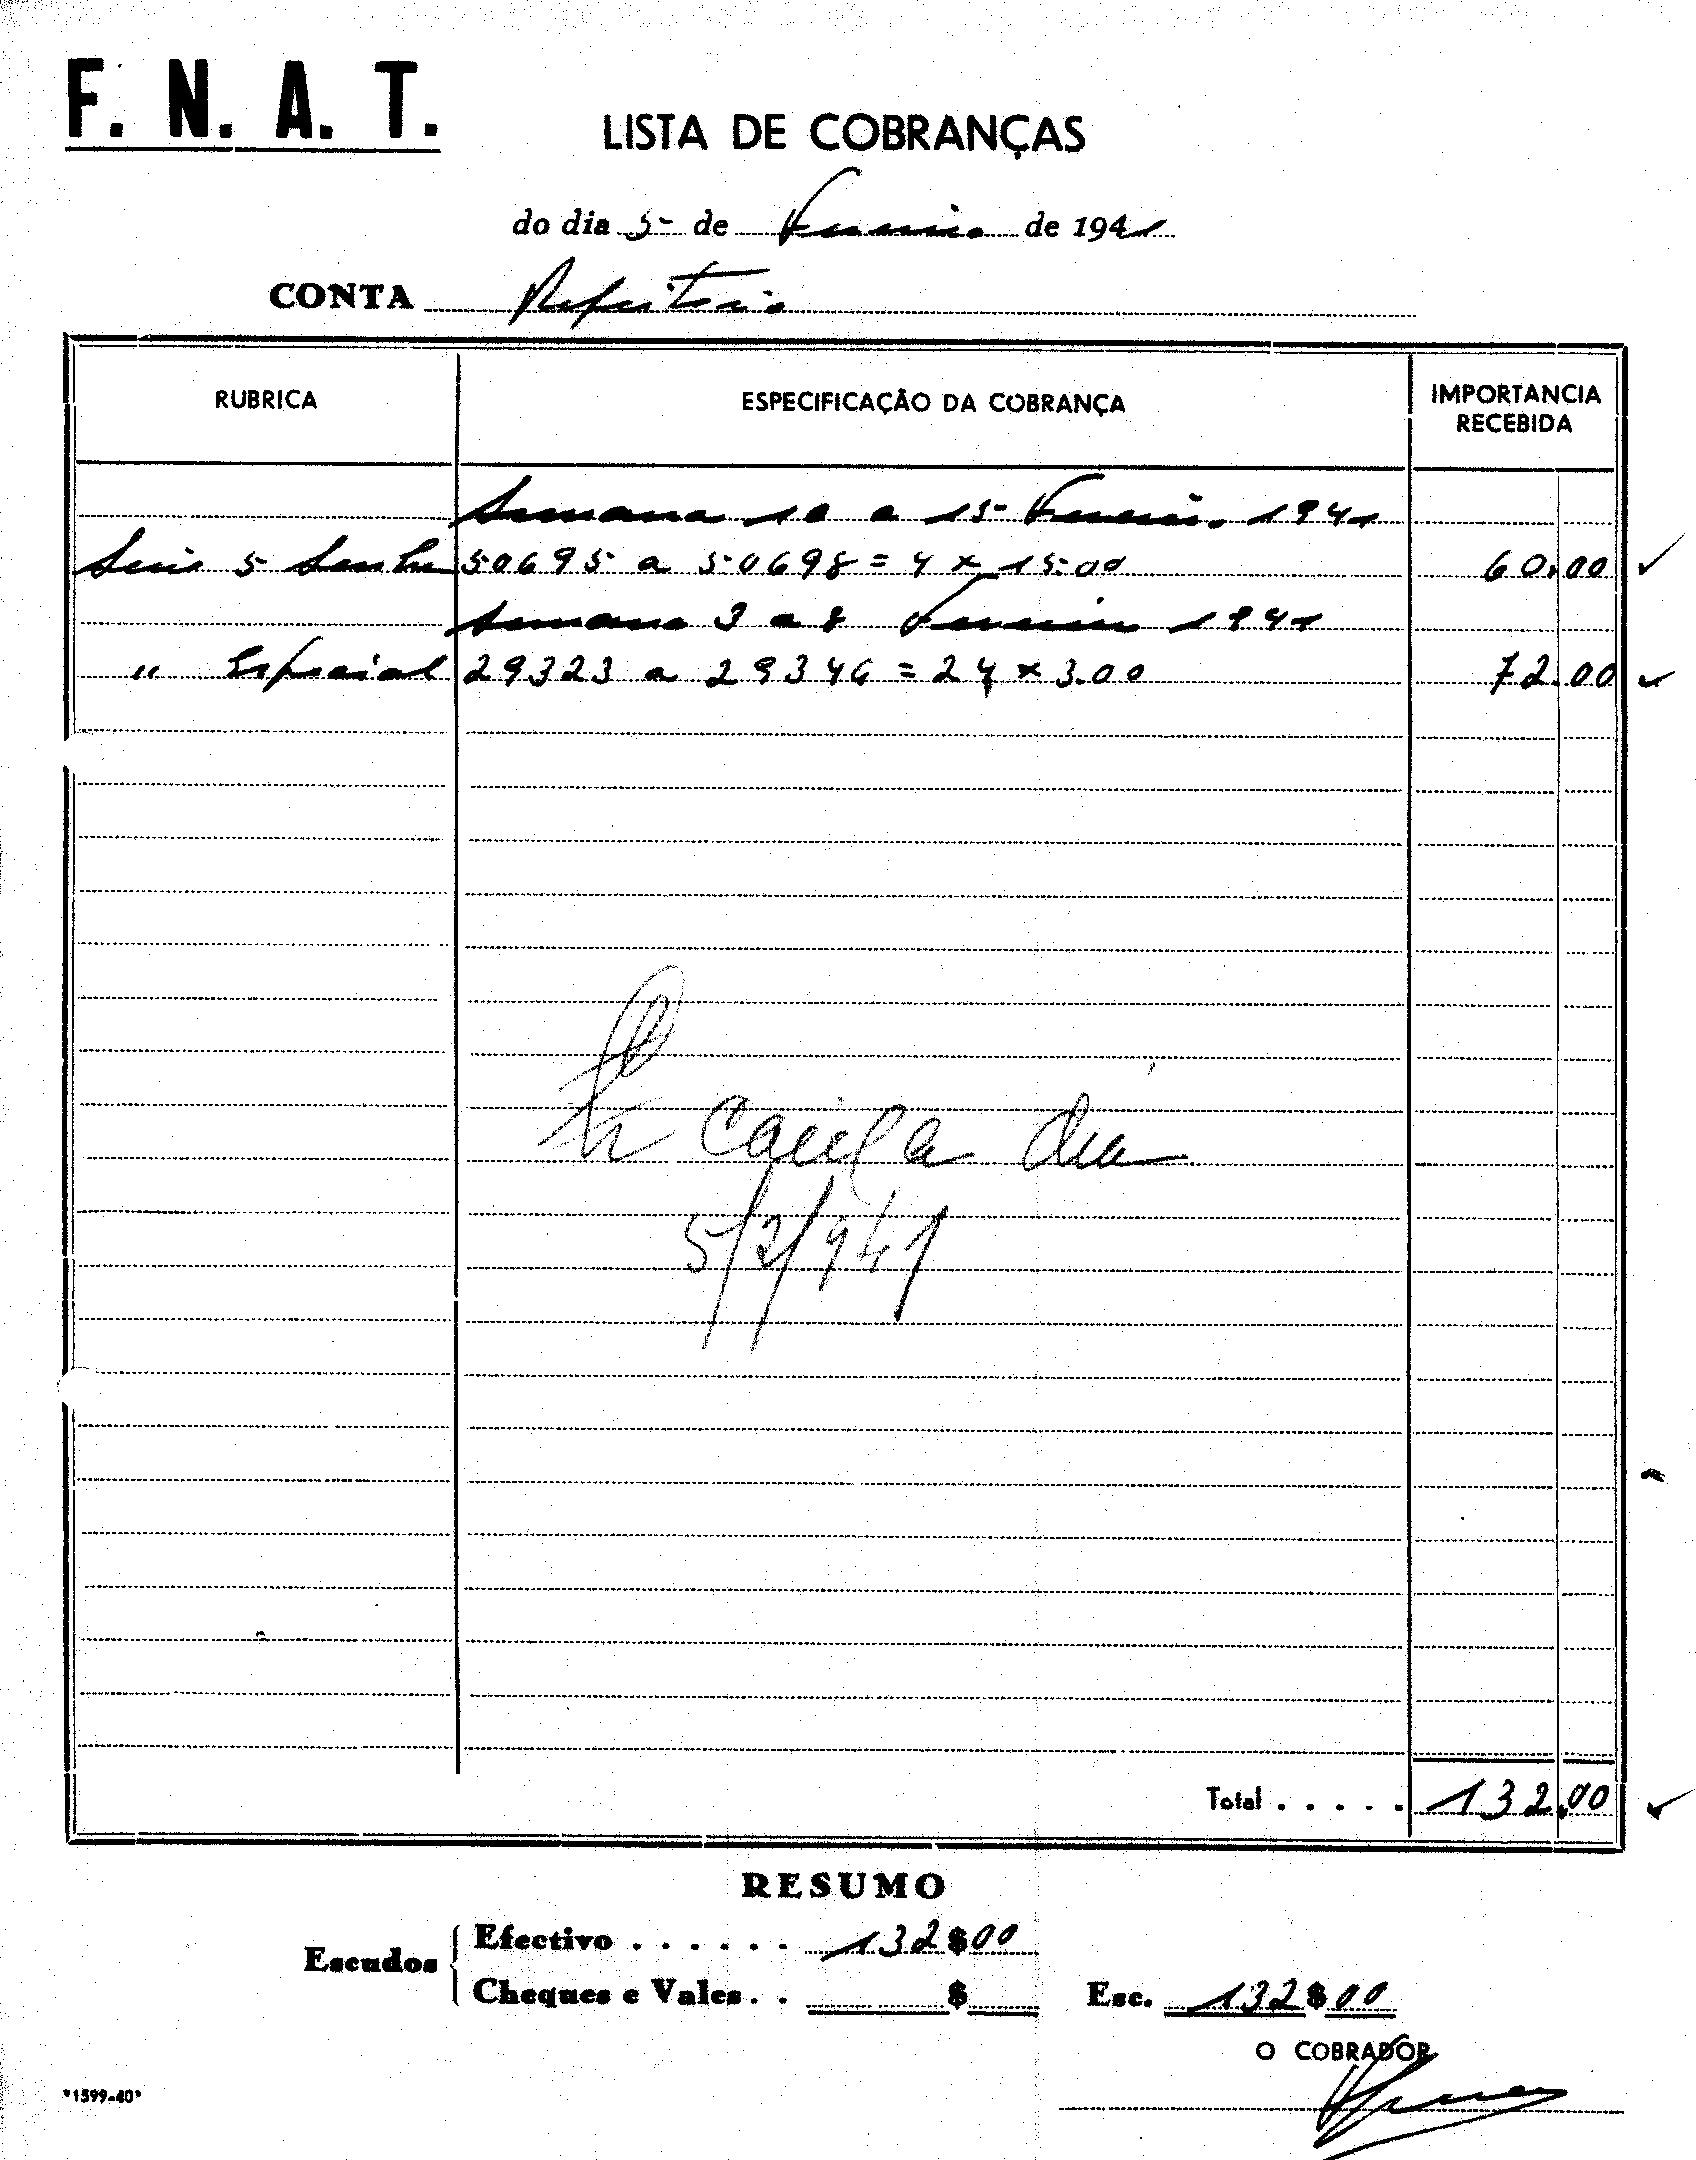 F. N. A. T.
LISTA DE COBRANÇAS
do dia 5 de Fevereiro de 1941
CONTA Refeitorio
RUBRICA ESPECIFICAÇÃO DA COBRANÇA IMPORTANCIA RECEBIDA
Semana 10 a 15 Fevereiro 1941
Serie 5 Senha 50695 a 50698 = 4 x 15.00 60.00
Semana 3 a 8 Fevereiro 1941
" Especial 29323 a 29346 = 24 x 3.00 72.00
dia
5/2/941
Total . . . . . 132.00
RESUMO
Escudos
Efectivo . . . . . . 132$00
Cheques e Vales . . $
Esc. 132$00
O COBRADOR
"1599-40"